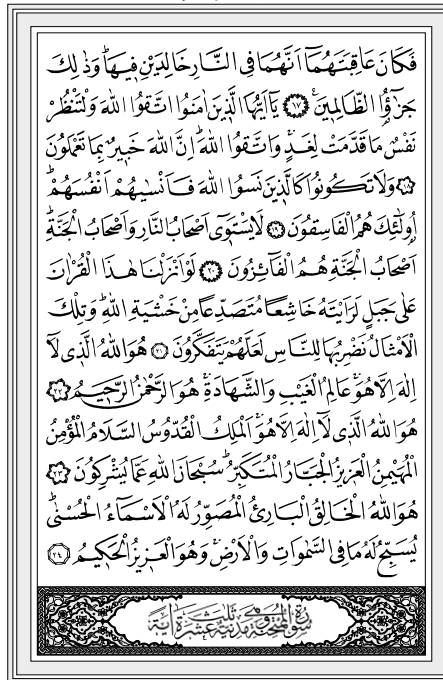 فَكَانَ عَاقِبَتَهُمَٓا اَنَّهُمَا فِي النَّارِ خَالِدَيْنِ ف۪يهَاۜ وَذٰلِكَ
جَزٰٓؤُا الظَّالِم۪ينَ۟ ﴿١٧﴾ يَٓا اَيُّهَا الَّذ۪ينَ اٰمَنُوا اتَّقُوا اللّٰهَ وَلْتَنْظُرْ
نَفْسٌ مَا قَدَّمَتْ لِغَدٍۚ وَاتَّقُوا اللّٰهَۜ اِنَّ اللّٰهَ خَب۪يرٌ بِمَا تَعْمَلُونَ
﴿١٨﴾ وَلَا تَكُونُوا كَالَّذ۪ينَ نَسُوا اللّٰهَ فَاَنْسٰيهُمْ اَنْفُسَهُمْۜ
اُو۬لٰٓئِكَ هُمُ الْفَاسِقُونَ ﴿١٩﴾ لَا يَسْتَو۪ٓي اَصْحَابُ النَّارِ وَاَصْحَابُ الْجَنَّةِۜ
اَصْحَابُ الْجَنَّةِ هُمُ الْفَٓائِزُونَ ﴿٢٠﴾ لَوْ اَنْزَلْنَا هٰذَا الْقُرْاٰنَ
عَلٰى جَبَلٍ لَرَاَيْتَهُ خَاشِعًا مُتَصَدِّعًا مِنْ خَشْيَةِ اللّٰهِۜ وَتِلْكَ
الْاَمْثَالُ نَضْرِبُهَا لِلنَّاسِ لَعَلَّهُمْ يَتَفَكَّرُونَ ﴿٢١﴾ هُوَ اللّٰهُ الَّذ۪ي لَٓا
اِلٰهَ اِلَّا هُوَۚ عَالِمُ الْغَيْبِ وَالشَّهَادَةِۚ هُوَ الرَّحْمٰنُ الرَّح۪يمُ ﴿٢٢﴾
هُوَ اللّٰهُ الَّذ۪ي لَٓا اِلٰهَ اِلَّا هُوَۚ اَلْمَلِكُ الْقُدُّوسُ السَّلَامُ الْمُؤْمِنُ
الْمُهَيْمِنُ الْعَز۪يزُ الْجَبَّارُ الْمُتَكَبِّرُۜ سُبْحَانَ اللّٰهِ عَمَّا يُشْرِكُونَ ﴿٢٣﴾
هُوَ اللّٰهُ الْخَالِقُ الْبَارِئُ الْمُصَوِّرُ لَهُ الْاَسْمَٓاءُ الْحُسْنٰىۜ
يُسَبِّحُ لَهُ مَا فِي السَّمٰوَاتِ وَالْاَرْضِۚ وَهُوَ الْعَز۪يزُ الْحَك۪يمُ ﴿٢٤﴾
سُورَةُ الْمُمْتَحِنَةِ مَدَنِيَّةٌ وَهِيَ ثَلٰثَ عَشْرَةَ اٰيَةً